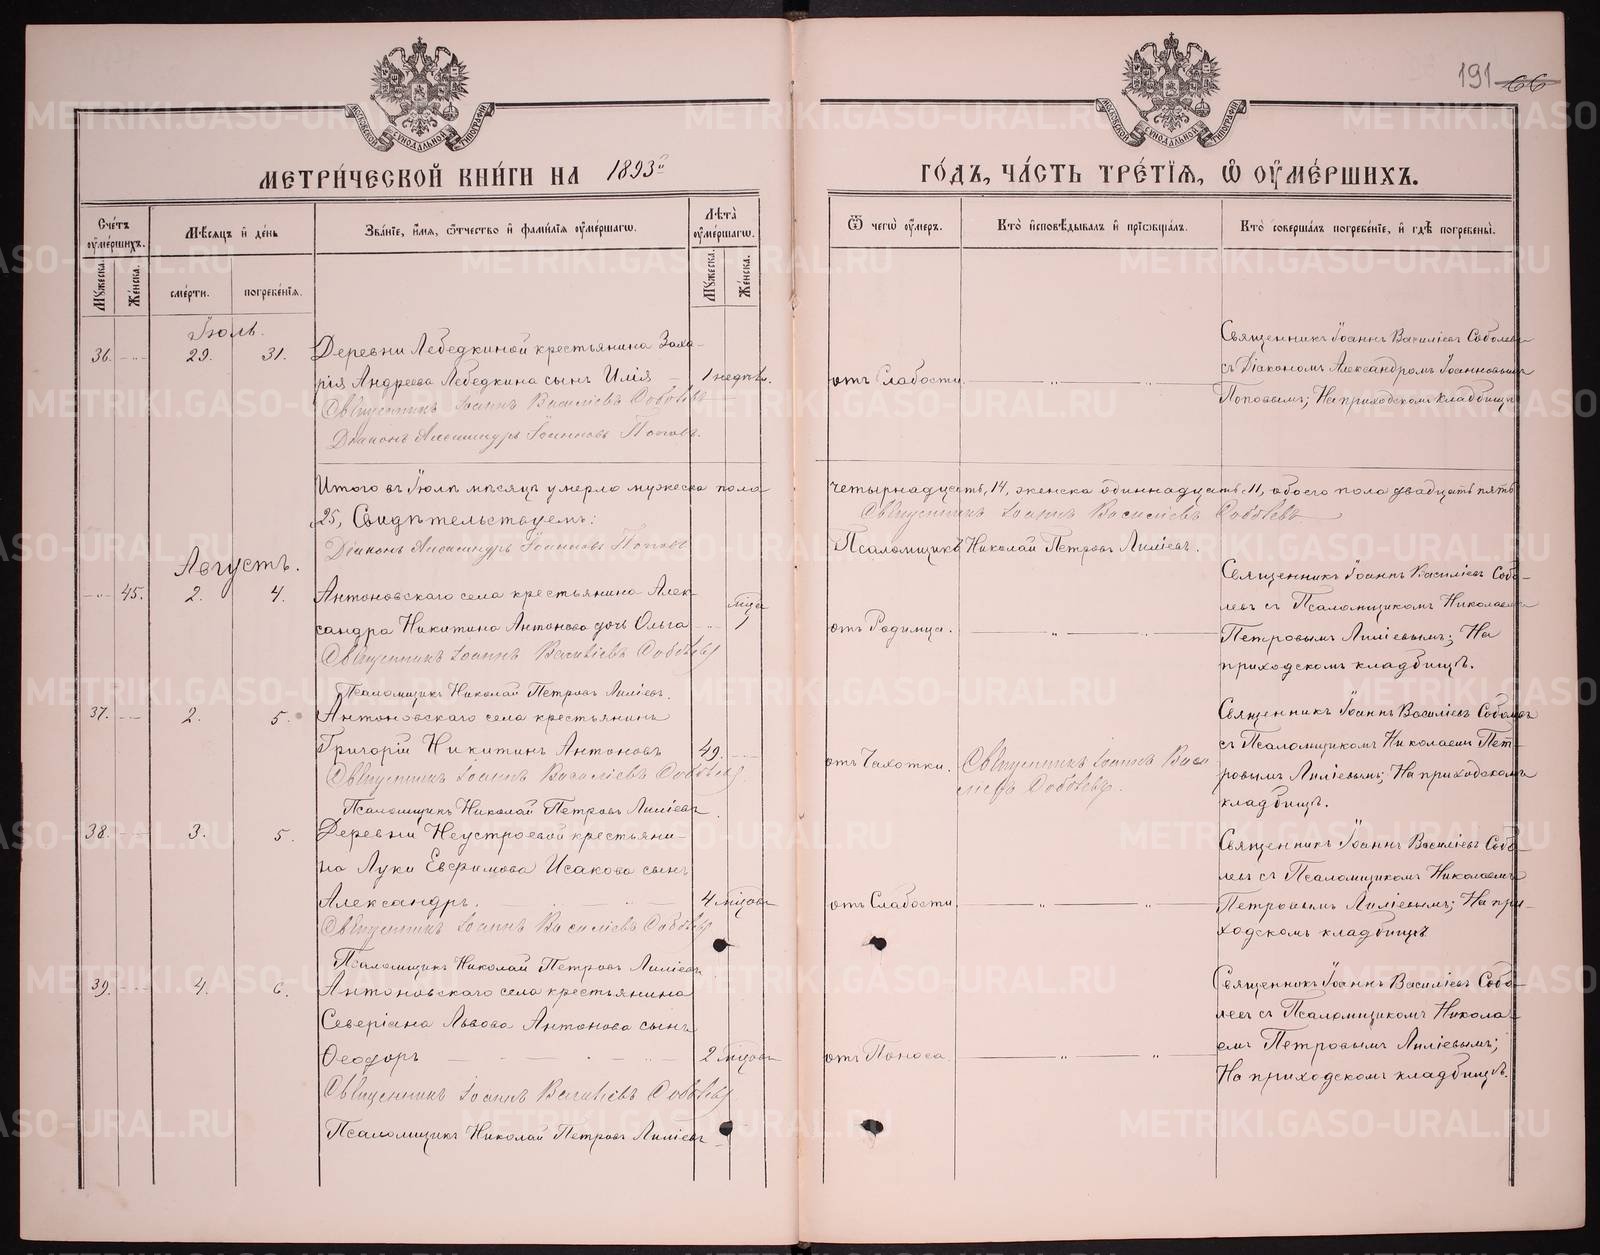 191 66
МЕТРИ́ЧЕСКОЙ КНИ́ГИ НА 1893й
ГО́ДЪ, ЧА́СТЬ ТРЕ́ТІЯ, Ѿ ОУМЕ́РШИХЪ.
Сче́тъ оуме́ршихъ.
Мѣ́сяцъ и҆ де́нь
Зва́нїе, и҆́мя, ѻ҆́тчество и҆ фами́лїя оуме́ршагѡ.
Лѣ́та оуме́ршагѡ.
Мꙋ́жеска. Же́нска.
сме́рти. погребе́нїя.
Мꙋ́жеска. Же́нска.
Ѿ чегѡ̀ оу́меръ.
Кто̀ и҆сповѣ́дывалъ и҆ прїѡбща́лъ.
Кто̀ соверша́лъ погребе́нїе, и҆ гдѣ̀ погребены̀.
Іюль.
36. 29. 31. Деревни Лебедкиной крестьянина Заха-
рія Андреева Лебедкина сынъ Илія 1 недѣл.
Священникъ Іоаннъ Василіевъ Соболевъ
Діаконъ Александръ Іоанновъ Поповъ.
отъ Слабости.
Священникъ Іоаннъ Василіевъ Соболевъ
съ Діакономъ Александромъ Іоанновымъ
Поповымъ; На приходскомъ кладбищѣ
Итого въ Іюлѣ мѣсяцѣ умерло мужеска пола
четырнадцать, 14, женска одиннадцать 11, обоего пола двадцать пять
25, Свидѣтельствуемъ:
Священникъ Іоаннъ Василіевъ Соболевъ
Діаконъ Александръ Іоанновъ Поповъ
Псаломщикъ Николай Петровъ Лиліевъ.
Августъ.
45. 2. 4. Антоновскаго села крестьянина Алек-
сандра Никитина Антонова дочь Ольга
мѣца 1
Священникъ Іоаннъ Василіевъ Соболевъ
Псаломщикъ Николай Петровъ Лиліевъ.
отъ Родимца.
Священникъ Іоаннъ Василіевъ Собо-
левъ съ Псаломщикомъ Николаемъ
Петровымъ Лиліевымъ; На
приходскомъ кладбищѣ.
37. 2. 5. Антоновскаго села крестьянинъ
Григорій Никитинъ Антоновъ 49.
Священникъ Іоаннъ Василіевъ Соболевъ
Псаломщикъ Николай Петровъ Лиліевъ
отъ Чахотки.
Священникъ Іоаннъ Васи
ліевъ Соболевъ.
Священникъ Іоаннъ Василіевъ Соболевъ
съ Псаломщикомъ Николаемъ Пет-
ровымъ Лиліевымъ; На приходскомъ
кладбищѣ.
38. 3. 5. Деревни Неустроевой крестьяни-
на Луки Евфимова Исакова сынъ
Александръ. 4 мѣцовъ
Священникъ Іоаннъ Василіевъ Соболевъ
Псаломщикъ Николай Петровъ Лиліевъ
отъ Слабости.
Священникъ Іоаннъ Василіевъ Собо
левъ съ Псаломщикомъ Николаемъ
Петровымъ Лиліевымъ; На при-
ходскомъ кладбищѣ
39. 4. 6. Антоновскаго села крестьянина
Северіана Львова Антонова сынъ
Ѳеодоръ 2 мѣцовъ
Священникъ Іоаннъ Василіевъ Соболевъ
Псаломщикъ Николай Петровъ Лиліевъ
отъ Поноса.
Священникъ Іоаннъ Василіевъ Собо-
левъ съ Псаломщикомъ Никола-
емъ Петровымъ Лиліевымъ;
На приходскомъ кладбищѣ.